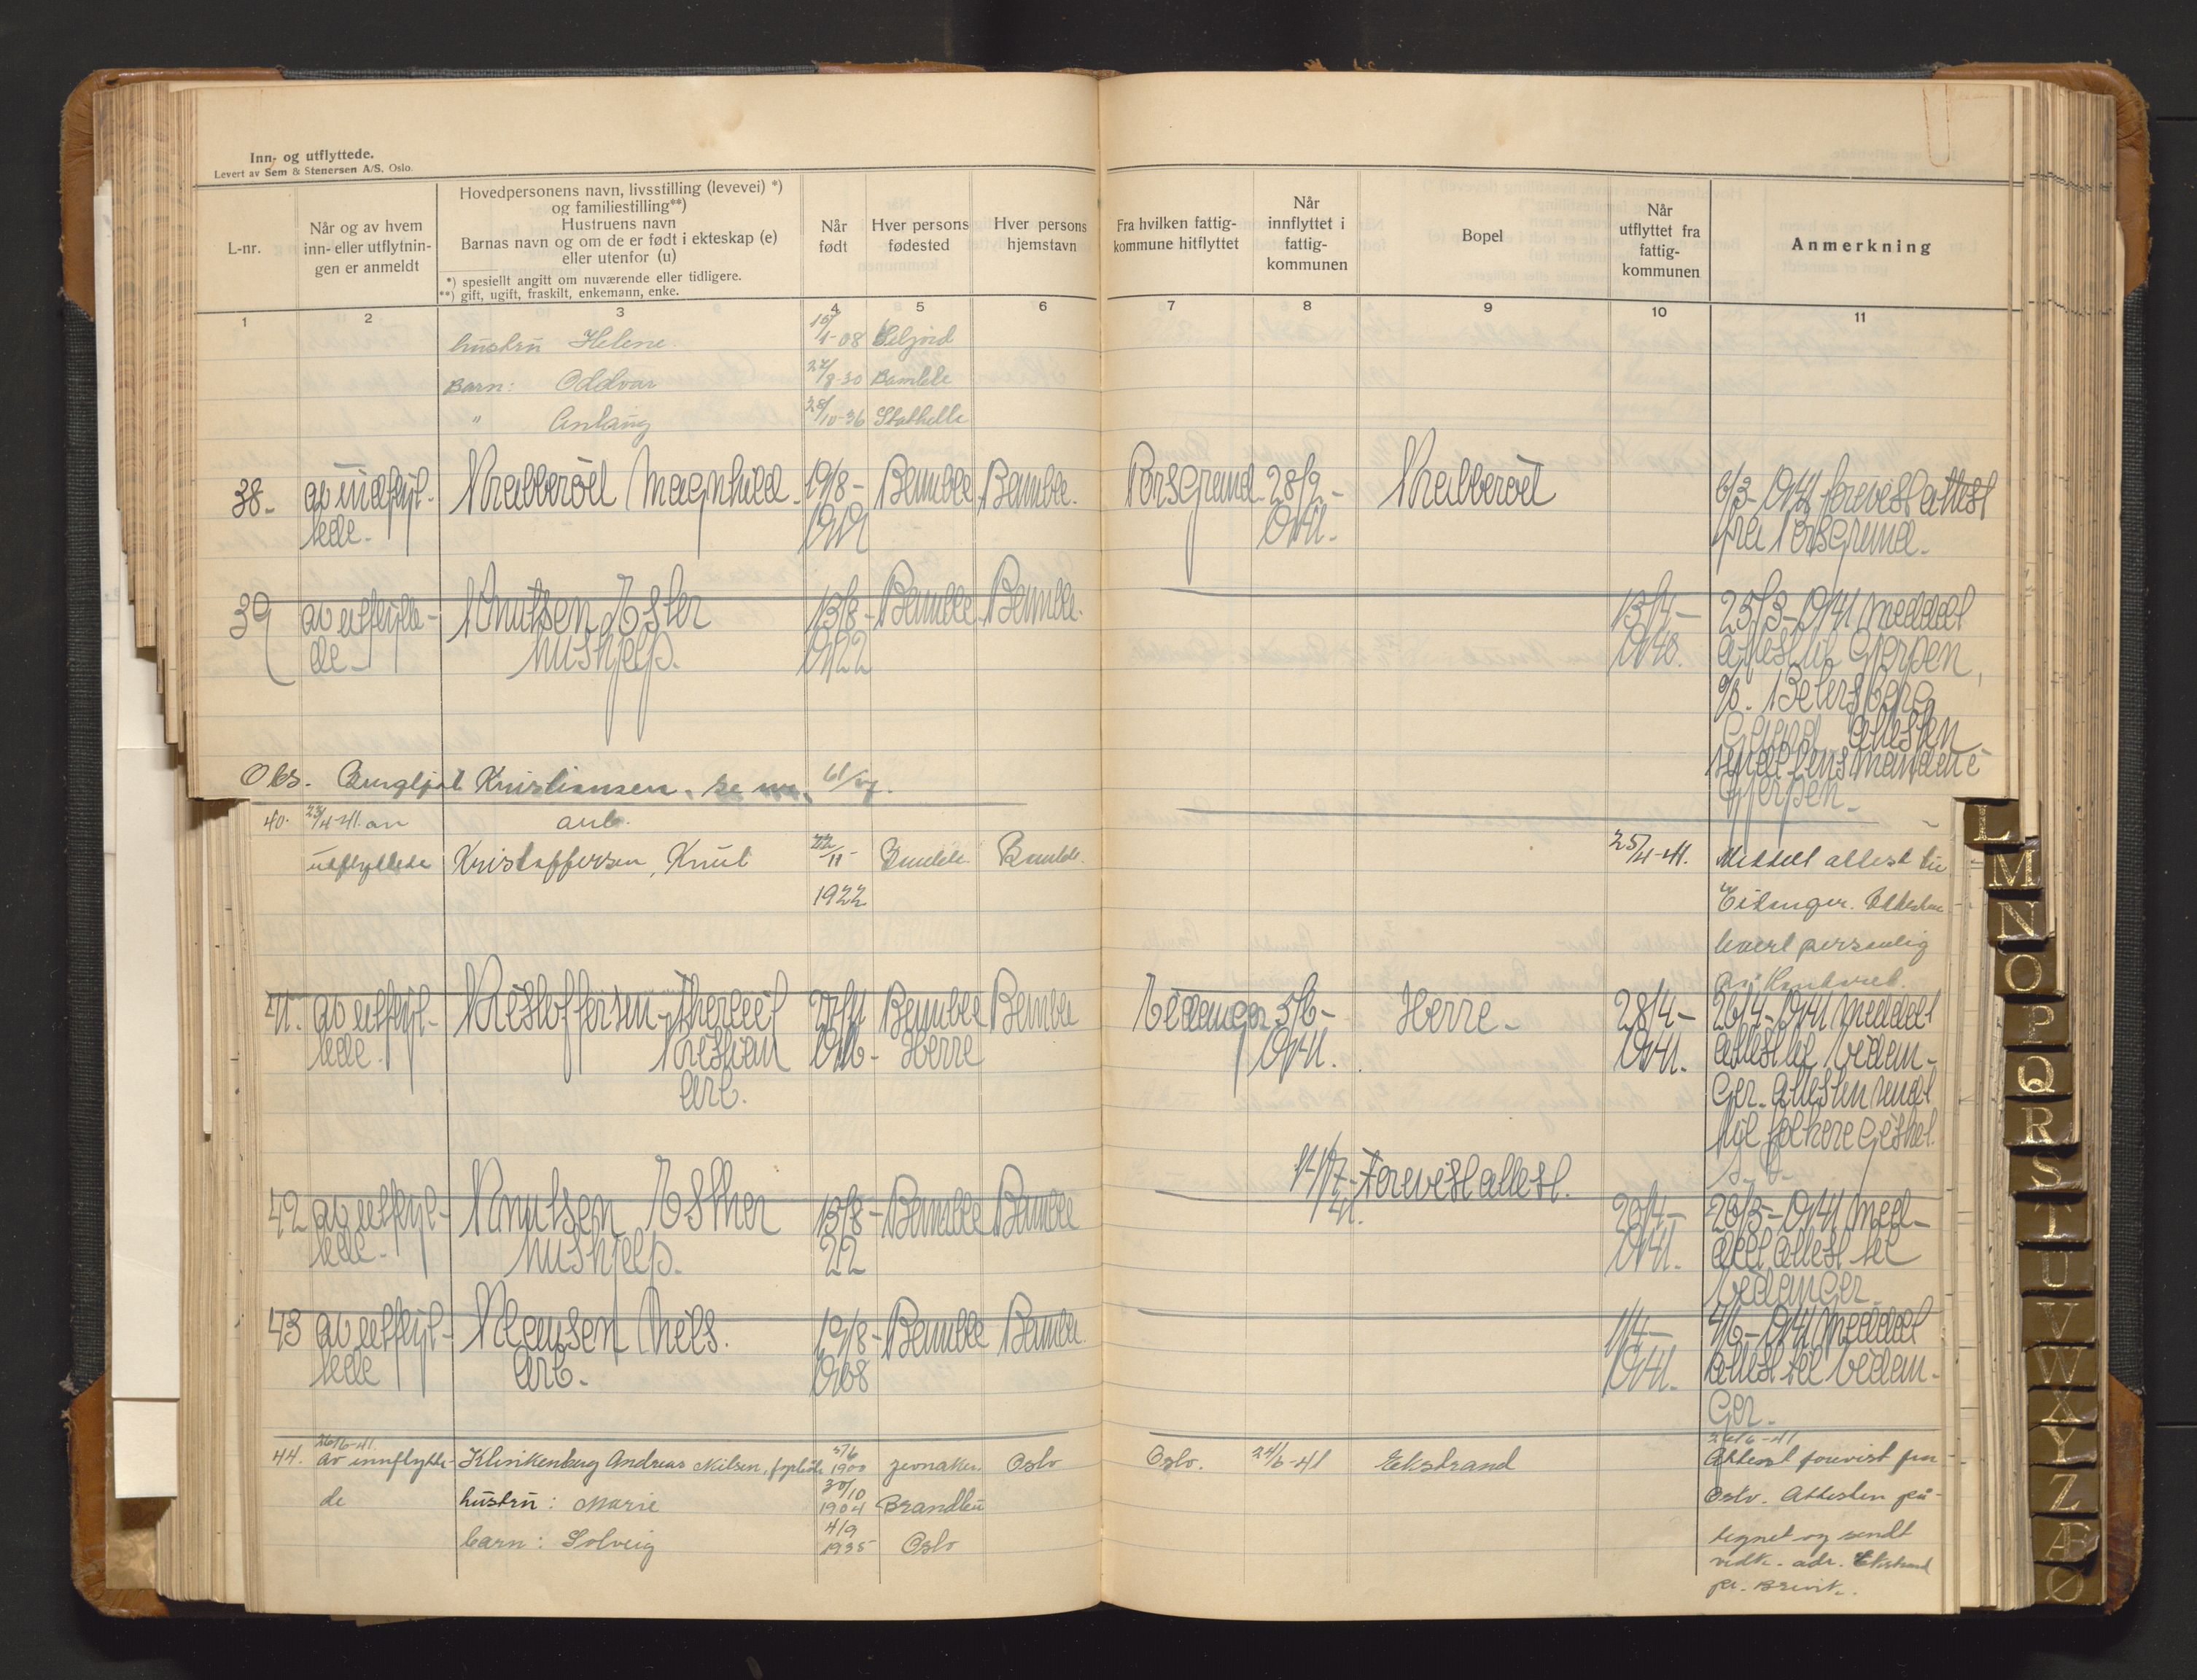 Inn- og utflyttede.
Levert av Sem & Stenersen A/S. Oslo.
L-nr.
Når og av hvem
inn- eller utflytnin-
gen er anmeldt
Hovedpersonens navn, livsstilling (levevei) *)
og familiestilling**)
Hustruens navn
Barnas navn og om de er født i ekteskap (e)
eller utenfor (u)
*) spesiellt angitt om nuværende eller tidligere.
**) gift, ugift, fraskilt, enkemann, enke.
Når
født
Hver persons
fødested
Hver persons
hjemstavn
Fra hvilken fattig-
kommune hitflyttet
Når
innflyttet i
fattig-
kommunen
Bopel
Når
utflyttet fra
fattig-
kommunen
Anmerkning
1 2 3 4 5 6 7 8 9 10 11
hustru Helene 08 Seljord
Barn: Oddvar 27/8-30 Bamble
" Aslaug 28/10-36 Stathelle
38. av indflyt- Magnhild 19/8- Bamble Bamble. Porsgrund 28/2- 6/3-1941 forevist attest
tede. 1941. fra Porsgrund.
39 av utflytte- Knutsen Ester 13/8- Bamble Bamble. 13/4- 25/3-1941 meddelt
de- hushjelp. 1922 1940. attest til Gjerpen,
attesten
sendt lensmanden i
Gjerpen-
Obs. Kristiansen, se
40. 23/4-41. av arb.
utflyttede Kristoffersen, Knut 22/11- Bamble Bamble. 25/4-41. Meddelt attest til
1922 Eidanger. Attesten
levert personlig
på kontoret.
41. av utflyt- Kristoffersen Thorleif Bamble Bamble Eidanger 5/6- Herre- 28/4- 26/4-1941 meddelt
tede. Kristian 1916- Herre 1941. 1941. attest til Eidan-
Arb. ger. Attesten sendt
til folkeregistret
s. d.
Forevist attest.
42 av utflyt- Knutsen Esther 13/8- Bamble Bamble 20/4- 1941 med-
tede- hushjelp. 22 1941. delt attest til
Eidanger.
43 av utflyt- Klausen Nils. 19/8- Bamble Bamble. 1/4- 4/6-1941 meddelt
tede Arb- 1908 1941. attest til Eidan-
ger-
26/6-41. 26/6-41
44. Av innflytte- Klinkenberg Andreas Nilsen, 1900 Jevnaker Oslo Oslo. 24/6-41 Ekstrand Attest forevist fra
de hustru: Marie 30/10 1904 Brandbu Oslo. Attesten på-
barn: Solveig 4/9 1935 Oslo tegnet og sendt
vedk. adr. Ekstrand
pr. Brevik.
L
M
N
O
P
Q
R
S
T
U
V
W
X
Y
Z
Æ
Ø